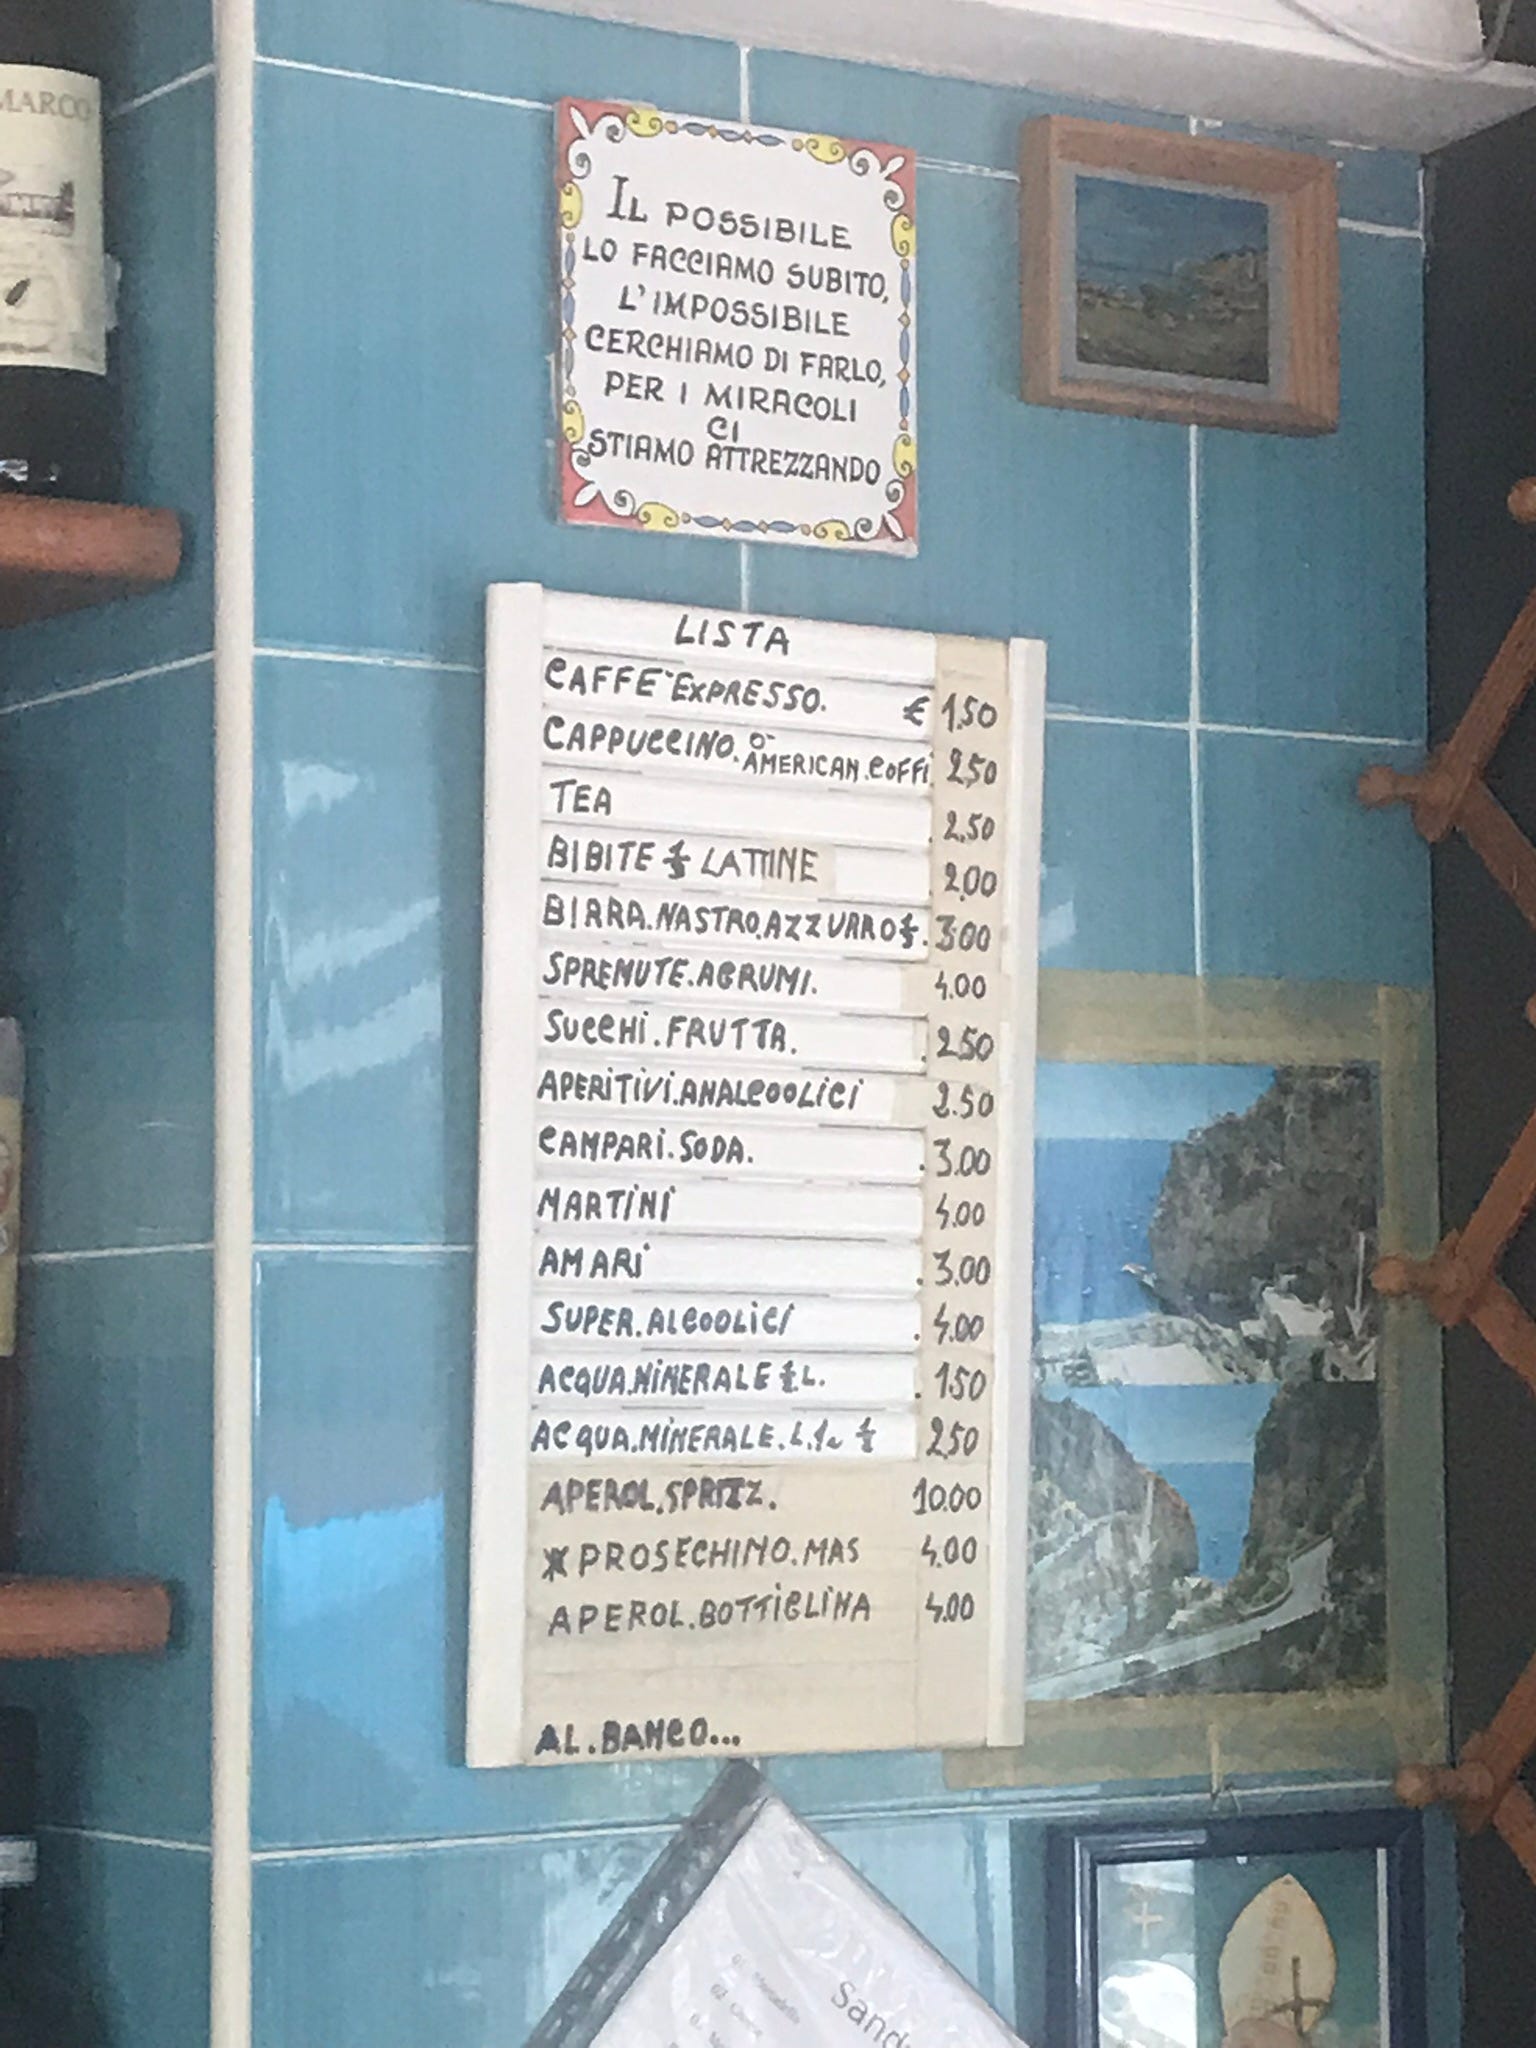 MARCO
IL POSSIBILE
LO FACCIAMO SUBITO,
L'IMPOSSIBILE
CERCHIAMO DI FARLO,
PER I MIRACOLI
CI
STIAMO ATTREZZANDO
LISTA
CAFFE' EXPRESSO. € 1.50
CAPPUCCINO. O- AMERICAN.COFFI 2.50
TEA . 2.50
BIBITE LATTINE . 2.00
BIRRA.NASTRO.AZZURRO . 3.00
SPREMUTE.AGRUMI. 4.00
SUCCHI.FRUTTA. . 2.50
APERITIVI.ANALCOOLICI 2.50
CAMPARI.SODA. . 3.00
MARTINI 4.00
AMARI . 3.00
SUPER.ALCOOLICI . 4.00
ACQUA.MINERALE ½.L. . 1.50
ACQUA.MINERALE.L.1 ½ 2.50
APEROL.SPRITZ. 10.00
* PROSECHINO.MAS 4.00
APEROL.BOTTIGLINA 4.00
AL.BANCO...
Sand